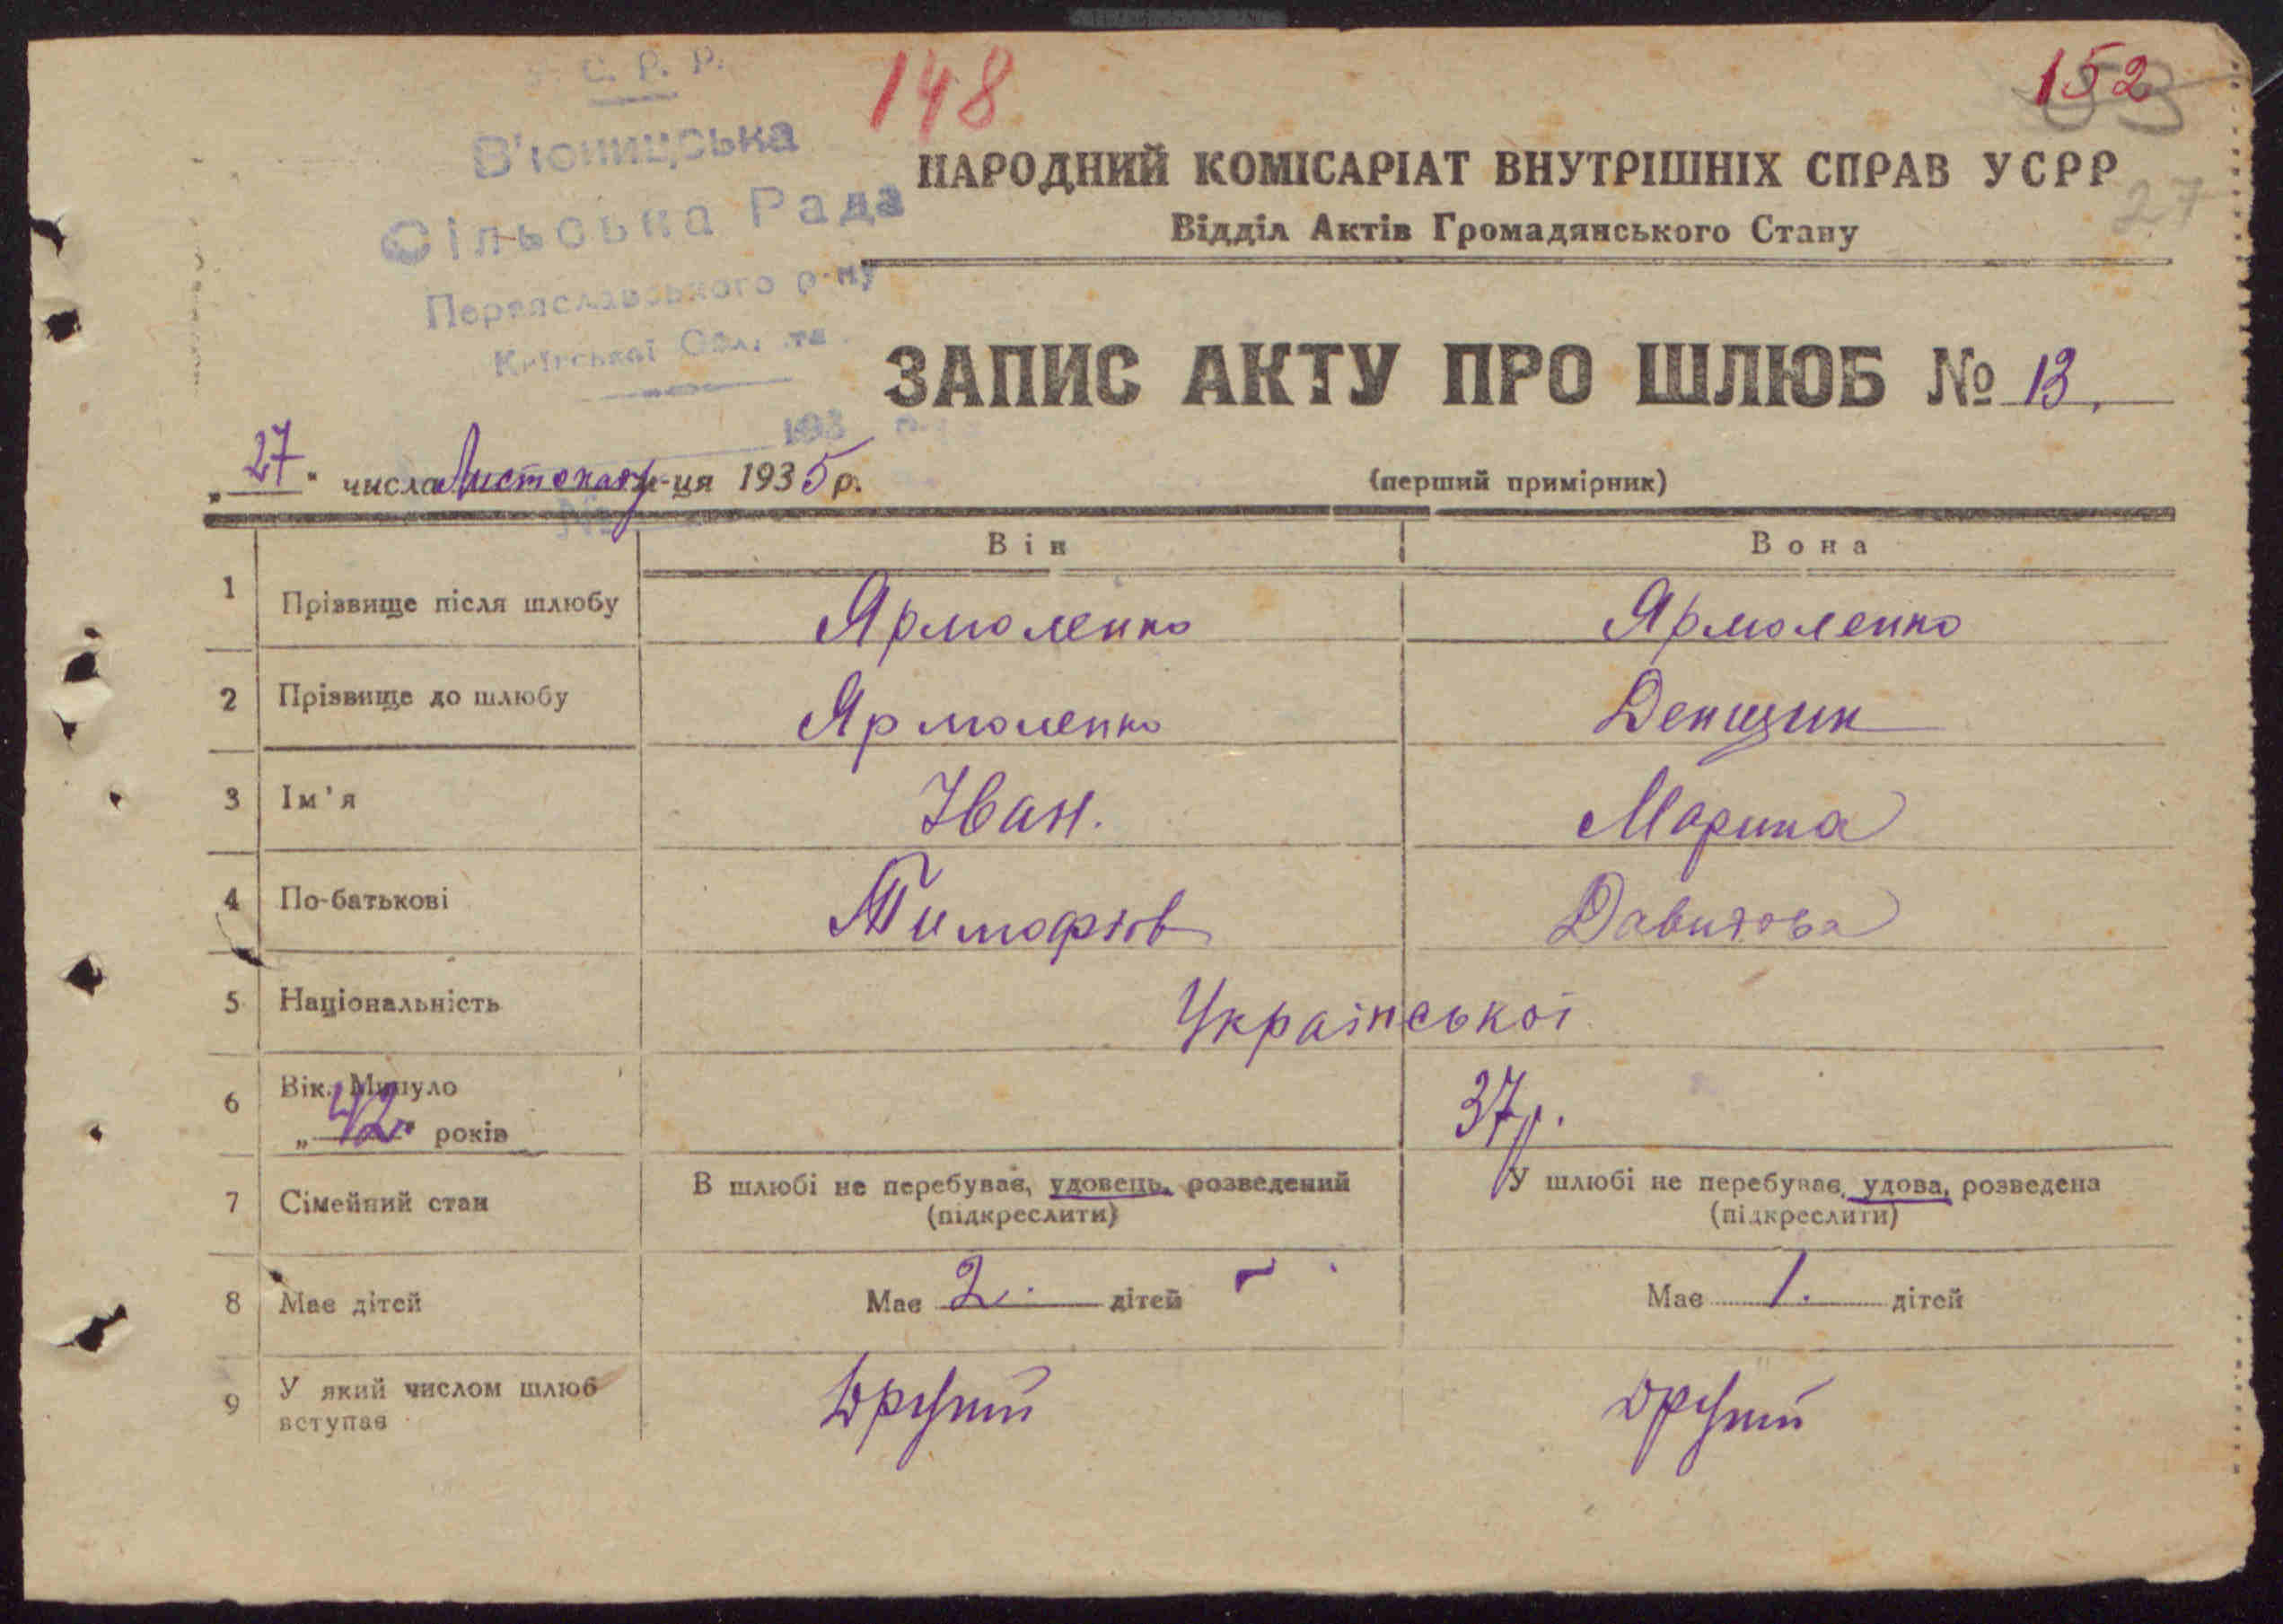 С. Р. Р.
148
152
53
В'юницська
НАРОДНИЙ КОМІСАРІАТ ВНУТРІШНІХ СПРАВ УСРР
27
Сільська Рада
Відділ Актів Громадянського Стану
Переяславського р-ну
Київської Обл.
ЗАПИС АКТУ ПРО ШЛЮБ № 13.
193
„27" числа Листопад м-ця 1935 р.
(перший примірник)
№
Він Вона
1 Прізвище після шлюбу Ярмоленко Ярмоленко
2 Прізвище до шлюбу Ярмоленко Денщик
3 Ім'я Іван. Марина
4 По-батькові Тимофіїв Давидова
5 Національність Української
6 Вік. Минуло
„42" років 37 р.
7 Сімейний стан В шлюбі не перебуває, удовець, розведений У шлюбі не перебуває, удова, розведена
(підкреслити) (підкреслити)
8 Має дітей Має 2. дітей Має 1. дітей
9 У який числом шлюб
вступає Другий Другий